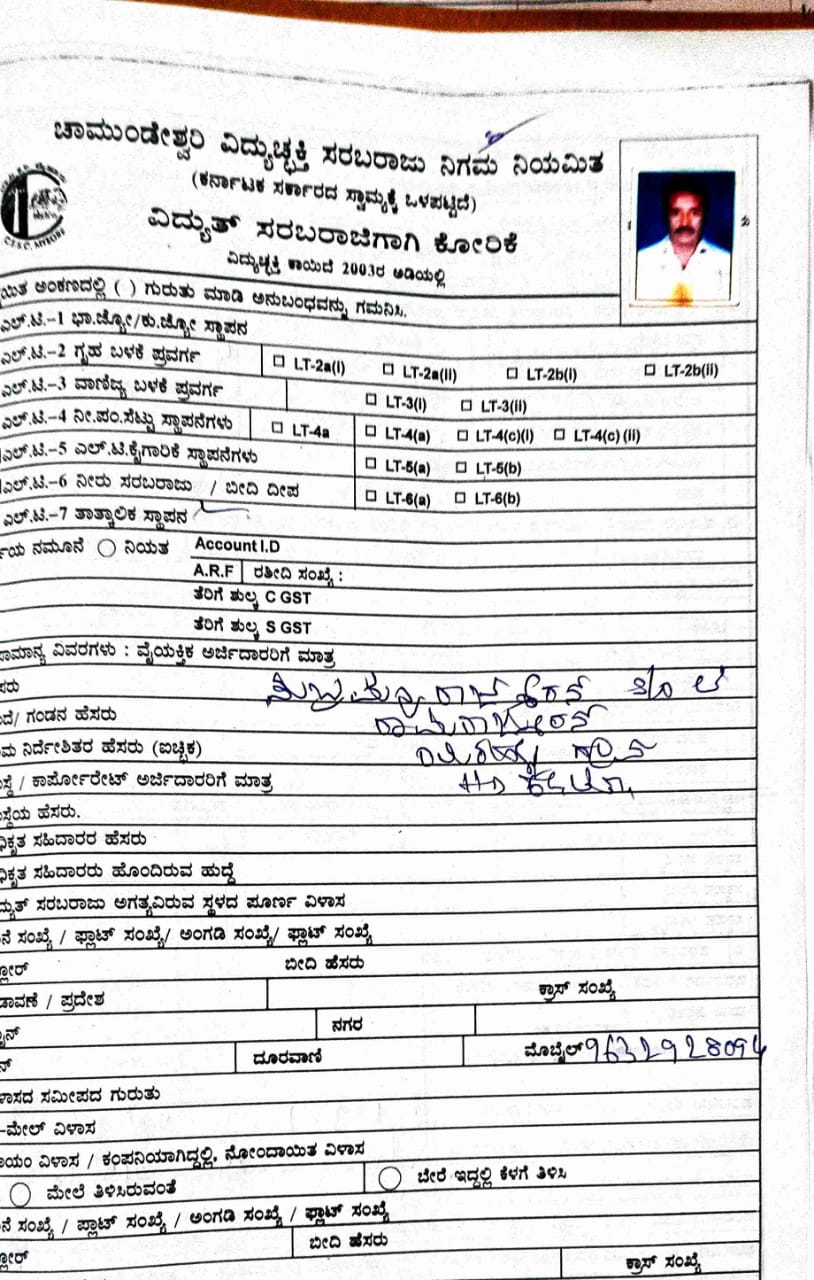 ಚಾಮುಂಡೇಶ್ವರಿ ವಿದ್ಯುಚ್ಛಕ್ತಿ ಸರಬರಾಜು ನಿಗಮ ನಿಯಮಿತ
(ಕರ್ನಾಟಕ ಸರ್ಕಾರದ ಸ್ವಾಮ್ಯಕ್ಕೆ ಒಳಪಟ್ಟಿದೆ)
ವಿದ್ಯುತ್ ಸರಬರಾಜಿಗಾಗಿ ಕೋರಿಕೆ
ವಿದ್ಯುಚ್ಛಕ್ತಿ ಕಾಯಿದೆ 2003ರ ಅಡಿಯಲ್ಲಿ
ಅಂಕಣದಲ್ಲಿ ( ) ಗುರುತು ಮಾಡಿ ಅನುಬಂಧವನ್ನು ಗಮನಿಸಿ.
ಎಲ್.ಟಿ.-1 ಭಾ.ಜ್ಯೋ/ಕು.ಜ್ಯೋ ಸ್ಥಾಪನ
ಎಲ್.ಟಿ.-2 ಗೃಹ ಬಳಕೆ ಪ್ರವರ್ಗ LT-2a(i) LT-2a(ii) LT-2b(i) LT-2b(ii)
ಎಲ್.ಟಿ.-3 ವಾಣಿಜ್ಯ ಬಳಕೆ ಪ್ರವರ್ಗ LT-3(i) LT-3(ii)
ಎಲ್.ಟಿ.-4 ನೀ.ಪಂ.ಸೆಟ್ಟು ಸ್ಥಾಪನೆಗಳು LT-4a LT-4(a) LT-4(c)(i) LT-4(c) (ii)
ಎಲ್.ಟಿ.-5 ಎಲ್.ಟಿ.ಕೈಗಾರಿಕೆ ಸ್ಥಾಪನೆಗಳು LT-5(a) LT-5(b)
ಎಲ್.ಟಿ.-6 ನೀರು ಸರಬರಾಜು / ಬೀದಿ ದೀಪ LT-6(a) LT-6(b)
ಎಲ್.ಟಿ.-7 ತಾತ್ಕಾಲಿಕ ಸ್ಥಾಪನ
ನಮೂನೆ ನಿಯತ Account I.D
A.R.F ರಶೀದಿ ಸಂಖ್ಯೆ :
ತೆರಿಗೆ ಶುಲ್ಕ C GST
ತೆರಿಗೆ ಶುಲ್ಕ S GST
ವಿವರಗಳು : ವೈಯಕ್ತಿಕ ಅರ್ಜಿದಾರರಿಗೆ ಮಾತ್ರ
ಗಂಡನ ಹೆಸರು
ನಿರ್ದೇಶಿತರ ಹೆಸರು (ಐಚ್ಛಿಕ)
/ ಕಾರ್ಪೋರೇಟ್ ಅರ್ಜಿದಾರರಿಗೆ ಮಾತ್ರ
ಹೆಸರು.
ಸಹಿದಾರರ ಹೆಸರು
ಸಹಿದಾರರು ಹೊಂದಿರುವ ಹುದ್ದೆ
ಸರಬರಾಜು ಅಗತ್ಯವಿರುವ ಸ್ಥಳದ ಪೂರ್ಣ ವಿಳಾಸ
ಸಂಖ್ಯೆ / ಫ್ಲಾಟ್ ಸಂಖ್ಯೆ/ ಅಂಗಡಿ ಸಂಖ್ಯೆ/ ಫ್ಲಾಟ್ ಸಂಖ್ಯೆ
ಬೀದಿ ಹೆಸರು
/ ಪ್ರದೇಶ ಕ್ರಾಸ್ ಸಂಖ್ಯೆ
ನಗರ
ದೂರವಾಣಿ ಮೊಬೈಲ್ 9632928094
ಸಮೀಪದ ಗುರುತು
-ಮೇಲ್ ವಿಳಾಸ
ವಿಳಾಸ / ಕಂಪನಿಯಾಗಿದ್ದಲ್ಲಿ, ನೋಂದಾಯಿತ ವಿಳಾಸ
ಮೇಲೆ ತಿಳಿಸಿರುವಂತೆ ಬೇರೆ ಇದ್ದಲ್ಲಿ ಕೆಳಗೆ ತಿಳಿಸಿ
ಸಂಖ್ಯೆ / ಪ್ಲಾಟ್ ಸಂಖ್ಯೆ / ಅಂಗಡಿ ಸಂಖ್ಯೆ / ಫ್ಲಾಟ್ ಸಂಖ್ಯೆ
ಬೀದಿ ಹೆಸರು
ಕ್ರಾಸ್ ಸಂಖ್ಯೆ